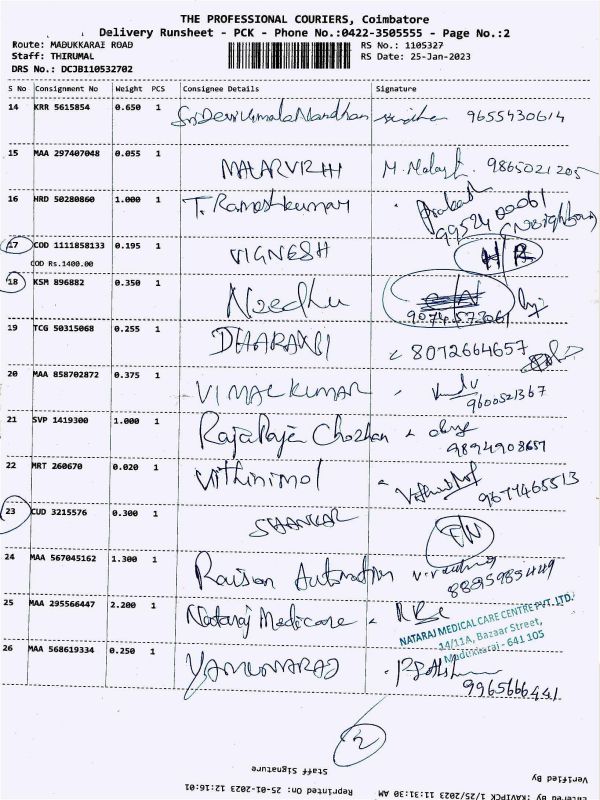 THE PROFESSIONAL COURIERS, Coimbatore
Delivery Runsheet - PCK - Phone No.:0422-3505555 - Page No.:2
Route: MADUKKARAI ROAD RS No.: 1105327
Staff: THIRUMAL RS Date: 25-Jan-2023
DRS No.: DCJB110532702
S No Consignment No Weight PCS Consignee Details Signature
14 KRR 5615854 0.650 1 9655430614
15 MAA 297407048 0.055 1 MALARVIZHI M. Malar 9865021205
16 HRD 50280860 1.000 1 T. Rameshkumar Prakash
(Neighbour)
17 COD 1111858133 0.195 1 VIGNESH
COD Rs.1400.00
18 KSM 896882 0.350 1 Needhu
9074573061
19 TCG 50315068 0.255 1 DHARANI 8072664657
20 MAA 858702872 0.375 1 VIMALKUMAR
9600521367
21 SVP 1419300 1.000 1 RajaRaja Chozhan
9894908657
22 MRT 260670 0.020 1 Vithinimol
9677465513
23 CUD 3215576 0.300 1 SHANKAR
24 MAA 567045162 1.300 1 Raison Automation
25 MAA 295566447 2.200 1 Nataraj Medicare
NATARAJ MEDICAL CARE CENTRE PVT. LTD.
14/11A, Bazaar Street,
Madukkarai - 641 105
26 MAA 568619334 0.250 1 YAMUNARAJ
2
Staff Signature
Verified By
Reprinted On: 25-01-2023 12:16:01
Entered By :KAVIPCK 1/25/2023 11:31:30 AM